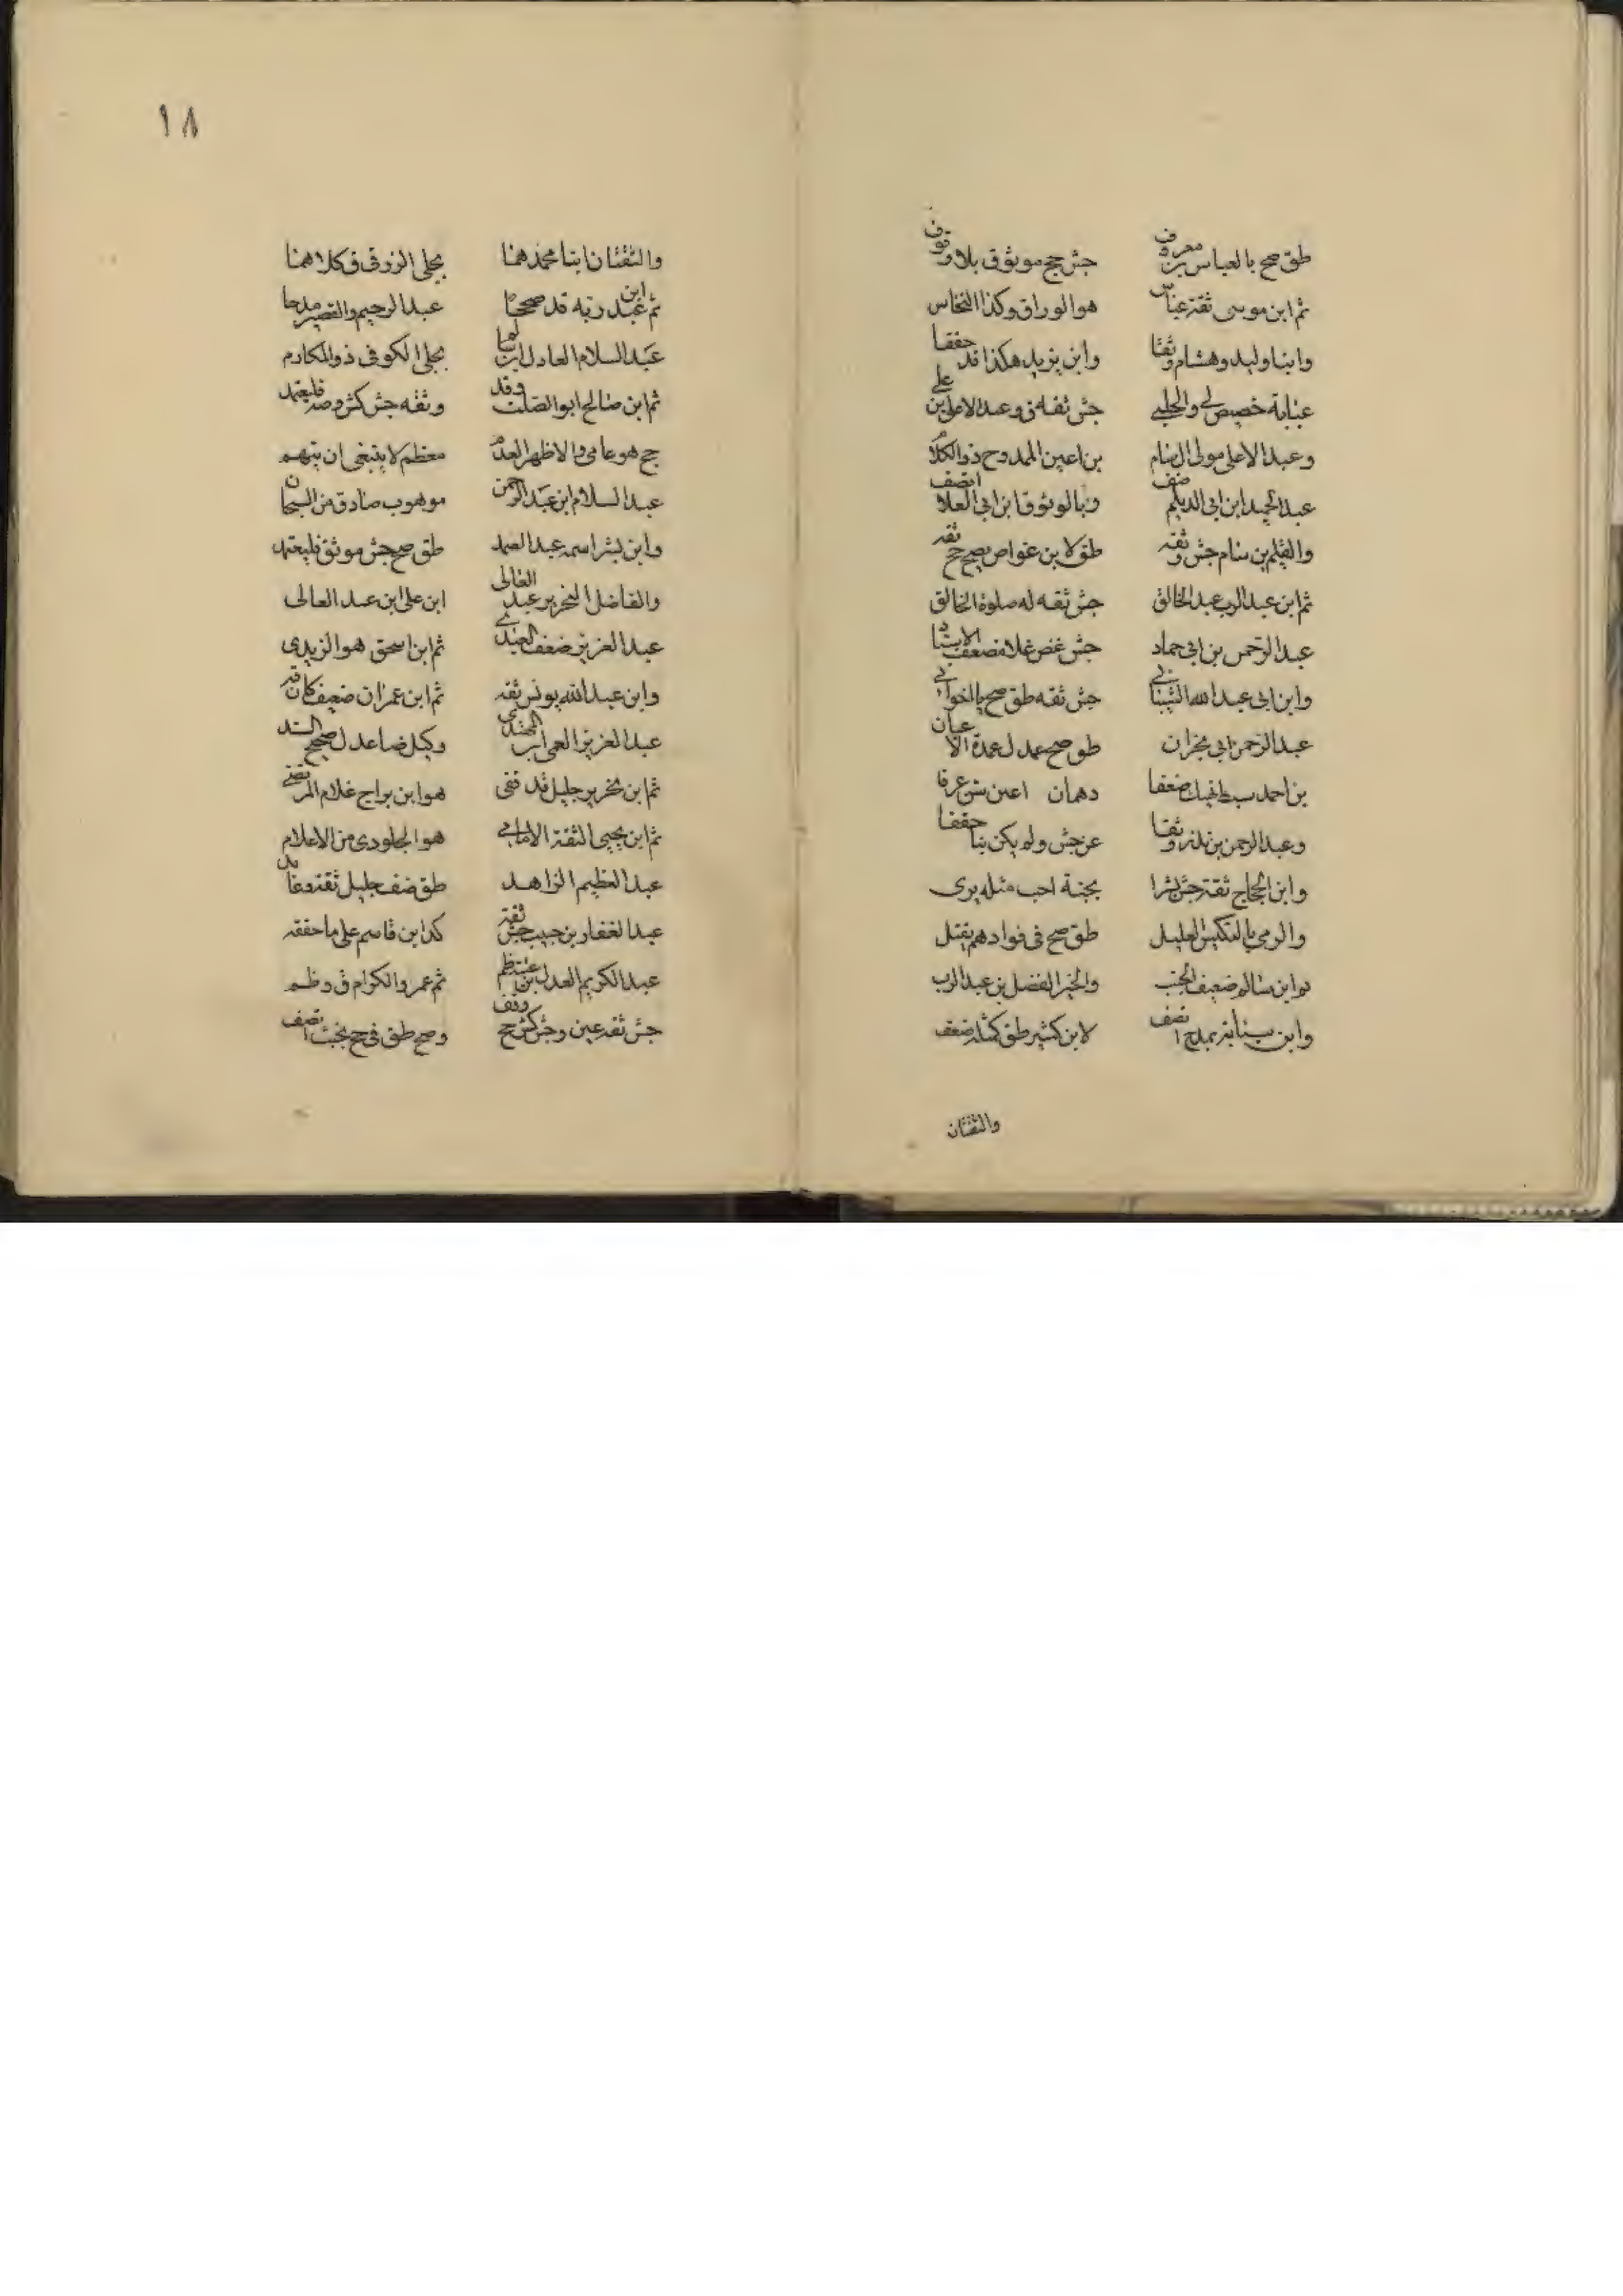 طق صح بالعباس بن معروف جش جج موثوق بلا وقوف
ثم ابن موسى ثقة عباس هو الوراق وكذا النخاس
وابنا وليد وهشام وثقا وابن يزيد هكذا قد حققا
عباية خصيص لي والحلبي جش ثقة ق وعبد الاعلى بن علي
وعبد الاعلى مولى ال سام بن اعين الممدوح ذو الكلام
عبد الحميد ابن ابي الديلم ضف وبالوثوق ابن ابي العلا اتصف
بن سالم جش وثقه طق لابن غواص بصح جج ثقه
ثم ابن عبد الرب عبد الخالق جش ثقه له صلوة الخالق
عبد الرحمن بن ابي حماد جش غض غلا فضعف الاسناد
وابن ابي عبد الله الشيباني جش ثقه طق صح
عبد الرحمن ابي نجران طق صح عدل عمدة الاعيان
بن احمد ضعفا دهمان اعين عرفا
وعبد الرحمن بن بدر وثقا عن جش ولم يكن بنا حققا
وابن الحجاج ثقة جش بشرا بجنة احب مثله يرى
والرمي بالتكيس العليل طق صح في فوادهم يقتل
ابن سالم ضعيف اجتنب والخير الفضل بن عبد الرب
وابن سيابة بمدح اتصف لابن كثير طق كمثله ضعف
والثقتان
١٨
والثقتان ابنا محمد هنا بجلي الزرقي ق كلاهما
ثم ابن عبد ربه قد صححا عبد الرحيم والقصير مدحا
عبد السلام العادل بجلي الكوفي ذو المكارم
ثم ابن صالح ابو الصلت وقد وثقه جش كش وصه فليعتمد
جج هو عامي والاظهر العدم معظم لا ينبغي ان يتهم
عبد السلام ابن عبد الرحمن موهوب صادق من السبحان
وابن بشر اسمه عبد الصمد طق صح جش موثق فليعتمد
والفاضل النحرير عبد العالي ابن علي ابن عبد العالي
عبد العزيز ضعف العبدي ثم ابن اسحق هو الزيدي
وابن عبد الله يونس ثقه ثم ابن عمران ضعيف كان قه
عبد العزيز العمى ابن المهتدى وكيل ضا عدل صحيح السند
ثم ابن نحرير جليل قد قضى هو ابن براج غلام المرتضى
ثم ابن يحيى الثقة الامامي هو الجلودى من الاعلام
عبد العظيم الزاهد طق ضف جليل ثقة وعابد
عبد الغفار بن حبيب جش ثقة كذا ابن قاسم على ما حققه
عبد الكريم العدل بن عتبة ظم ثم عمرو الكرام ق وظم
جش ثقه عين وجش كش جج وقف وصح طق في جج بخبث اتصف